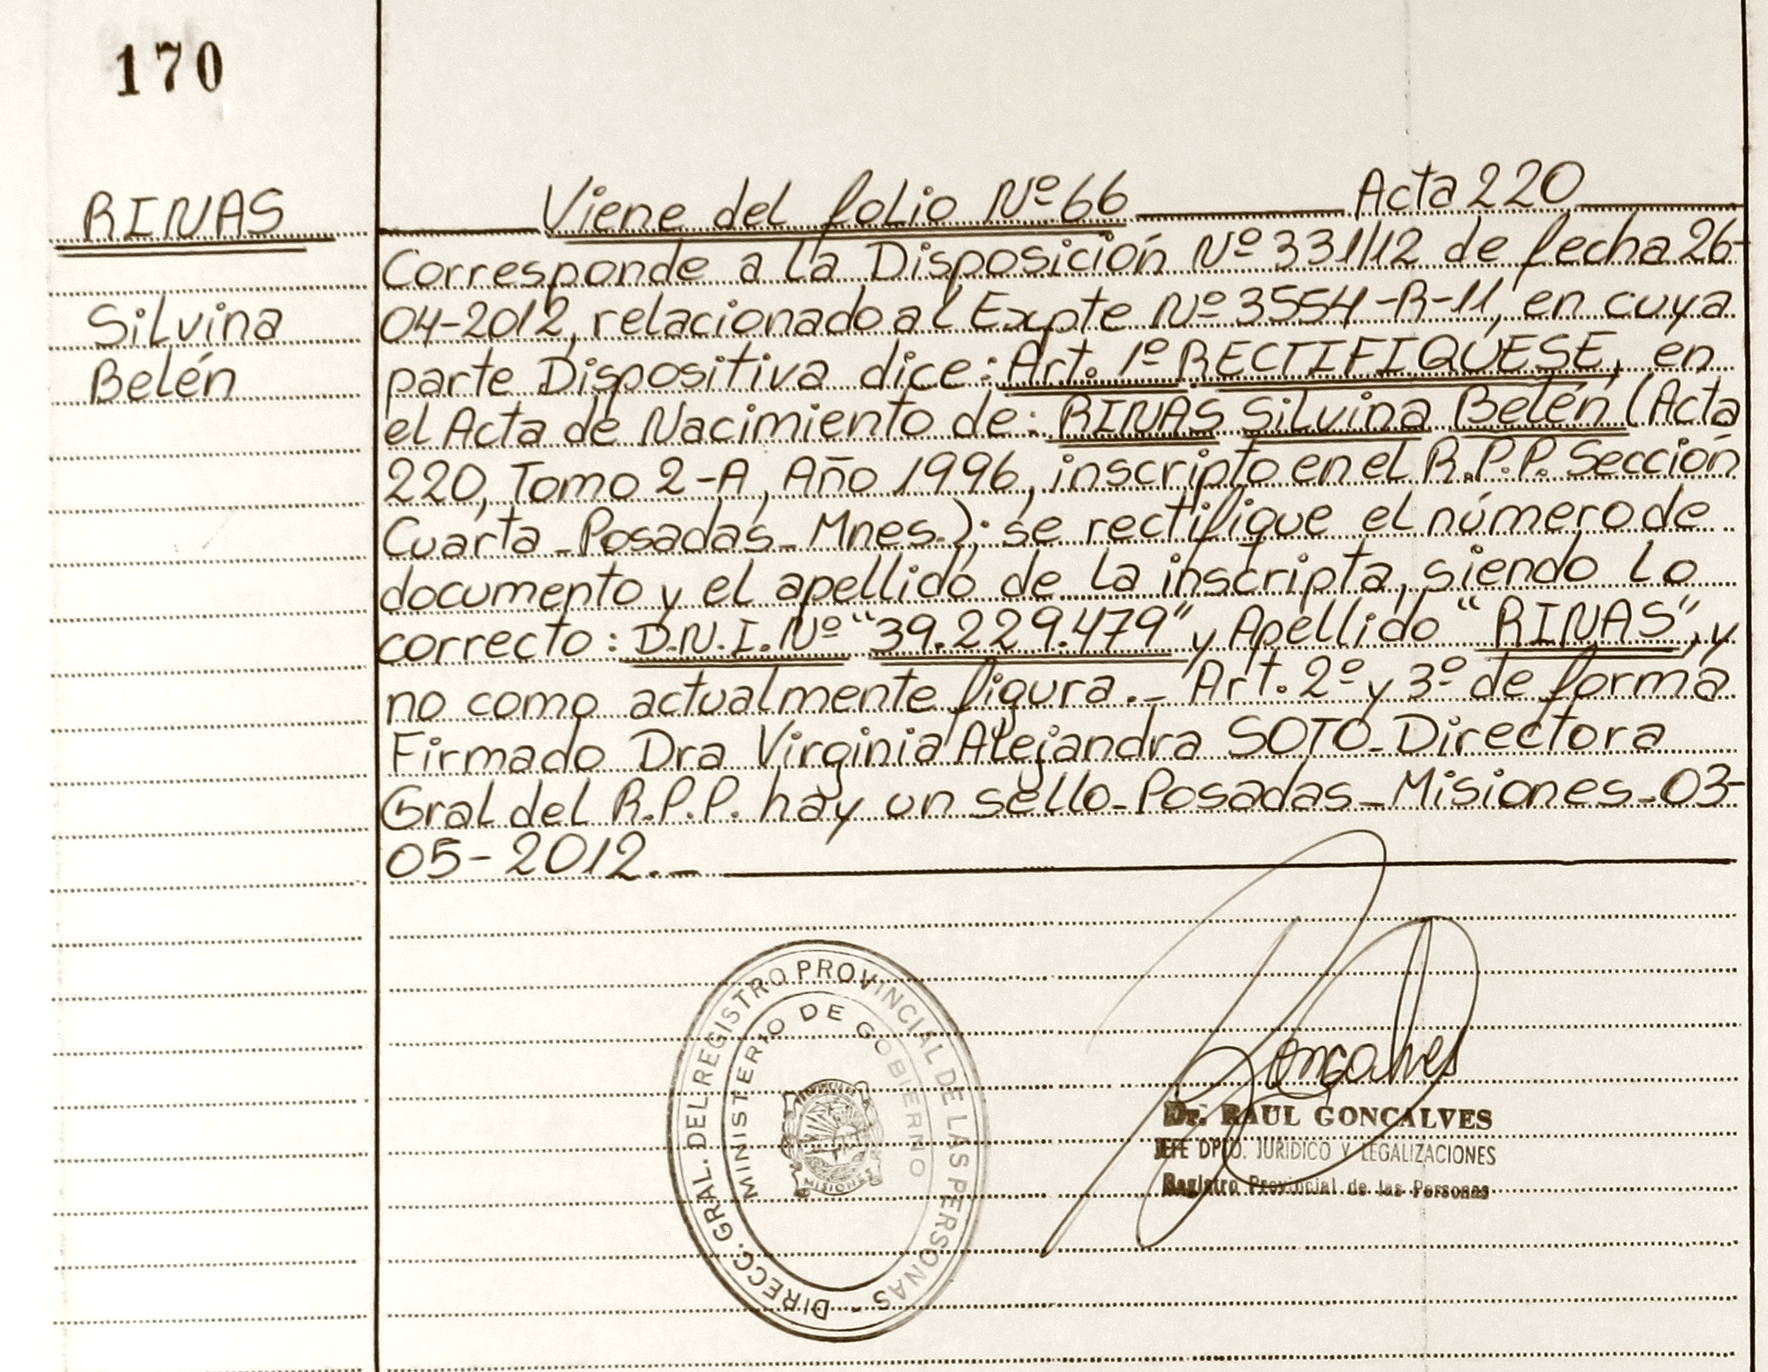 170
RINAS
Silvina
Belén
Viene del folio Nº 66 Acta 220
Corresponde a la Disposición Nº 331/12 de fecha 26-
04-2012, relacionado al Expte Nº 3554-R-11, en cuya
parte Dispositiva dice: Art. 1º RECTIFIQUESE, en
el Acta de Nacimiento de: RINAS Silvina Belén (Acta
220, Tomo 2-A, Año 1996, inscripto en el R.P.P. Sección
Cuarta - Posadas - Mnes.): se rectifique el número de
documento y el apellido de la inscripta, siendo lo
correcto: D.N.I. Nº "39.229.479" y Apellido "RINAS", y
no como actualmente figura.- Art. 2º y 3º de forma
Firmado Dra Virginia Alejandra SOTO - Directora
Gral del R.P.P. hay un sello - Posadas - Misiones - 03-
05-2012.-
DIRECC. GRAL. DEL REGISTRO PROVINCIAL DE LAS PERSONAS -
MINISTERIO DE GOBIERNO
MISIONES
Goncalves
Dr. RAUL GONCALVES
JEFE DPTO. JURIDICO Y LEGALIZACIONES
Registro Provincial de las Personas